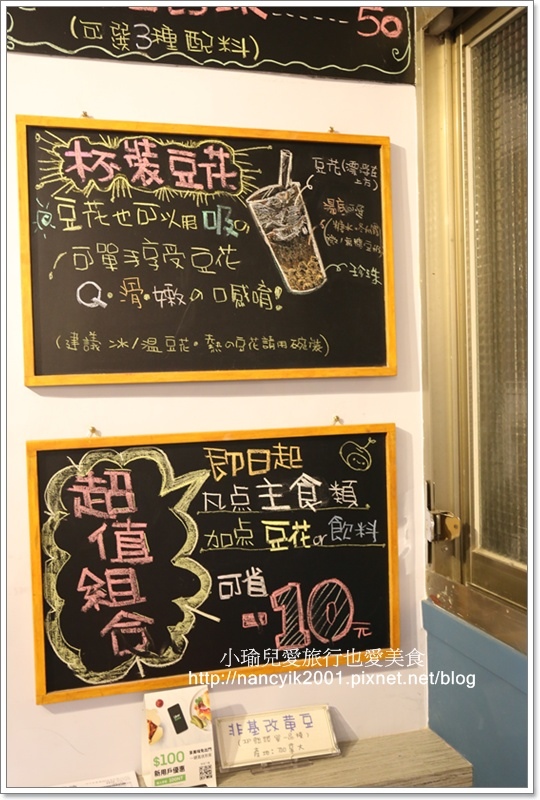 50
(可選3種配料)
杯裝豆花
豆花也可以用吸の
可單手享受豆花
Q·滑·嫩の口感唷!
(建議 冰/溫豆花。熱の豆花請用碗裝)
豆花(
上方)
湯底可選
珍珠
超值組合
即日起
凡点主食類
加点 豆花or飲料
可省
-10元
小瑜兒愛旅行也愛美食
http://nancyik2001.pixnet.net/blog
$100
新用戶優惠
非基改黃豆
產地:加拿大